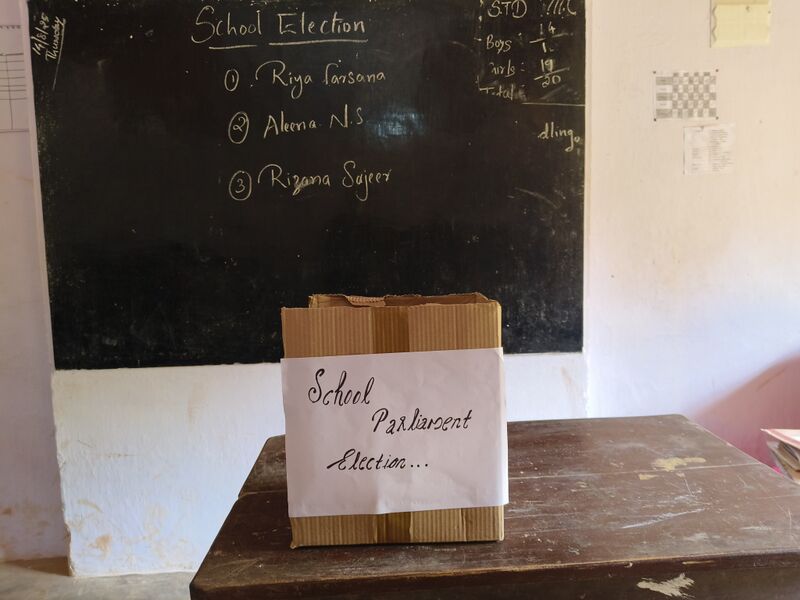 14/8/25
Thursday
School Election
① Riya Farsana
② Aleena N.S
③ Rizana Sajeer
STD
Boys :
Girls : 19
Total : 20
dlingo
School
Parliament
Election...